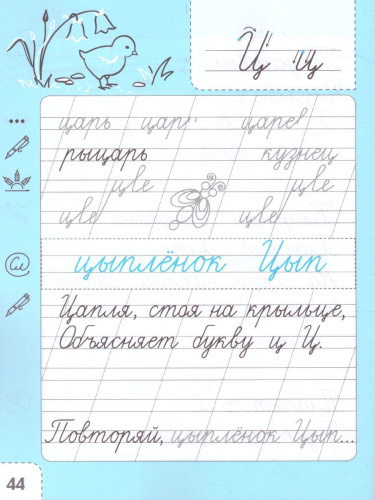 Ц ц
царь царь царев
рыцарь кузнец
цве цве
цве цве
Сл
цыплёнок Цып
Цапля, стоя на крыльце,
Объясняет букву ц и Ц.
Повторяй, цыплёнок Цып...
44